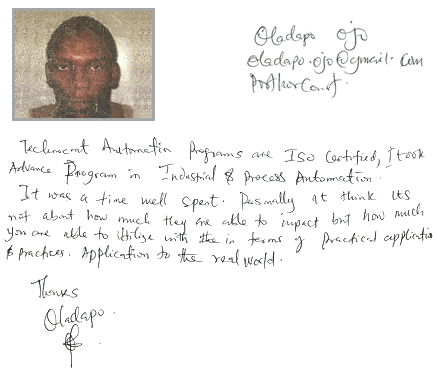 Oladapo Ojo
oladapo.ojo@gmail.com
PortHarCourt.
Technocrat Automation Programs are ISO Certified, I took
Advance Program in Industrial & Process Automation.
It was a time well spent. Pesmally at think its
not about how much they are able to impact but how much
you are able to Utilize with the in terms of practical application
& practices. Application to the real world.
Thanks
Oladapo.